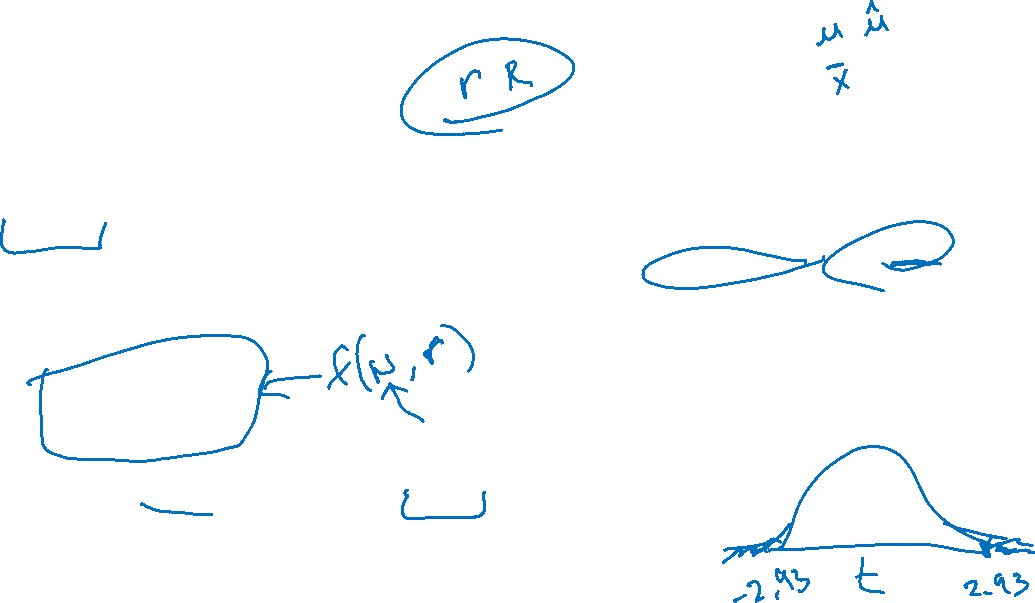 μ μ̂
r R
x̄
f(N, r)
-2.93 t 2.93